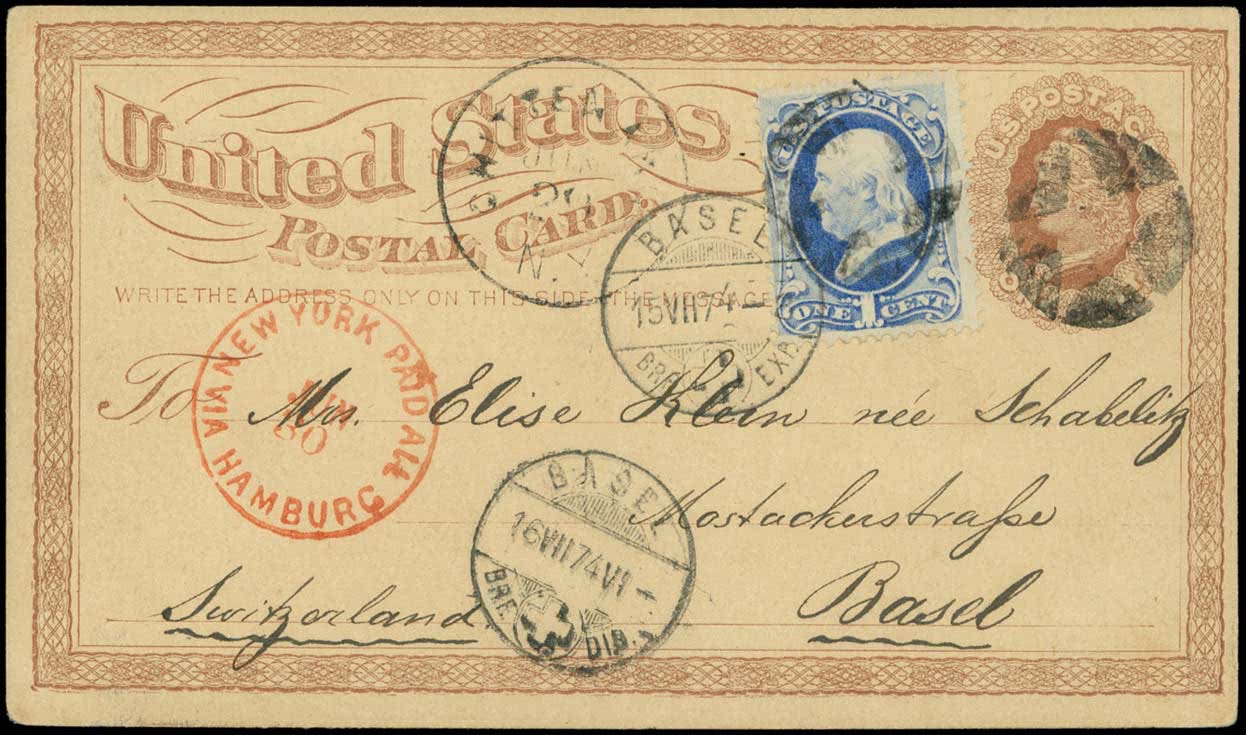 United States
POSTAL CARD.
WRITE THE ADDRESS ONLY ON THIS SIDE - THE MESSAGE
U.S. POSTAGE
ONE 1 CENT
U.S. POSTAGE
N.Y.
BASEL
15 VII 74
BRF. EXP.
NEW YORK PAID ALL
JUN
30
VIA HAMBURG
To Mrs. Elise Klein née Schabelitz
Mostackerstraße
Basel
Switzerland
BASEL
16 VII 74 VI
BRF. DIS.